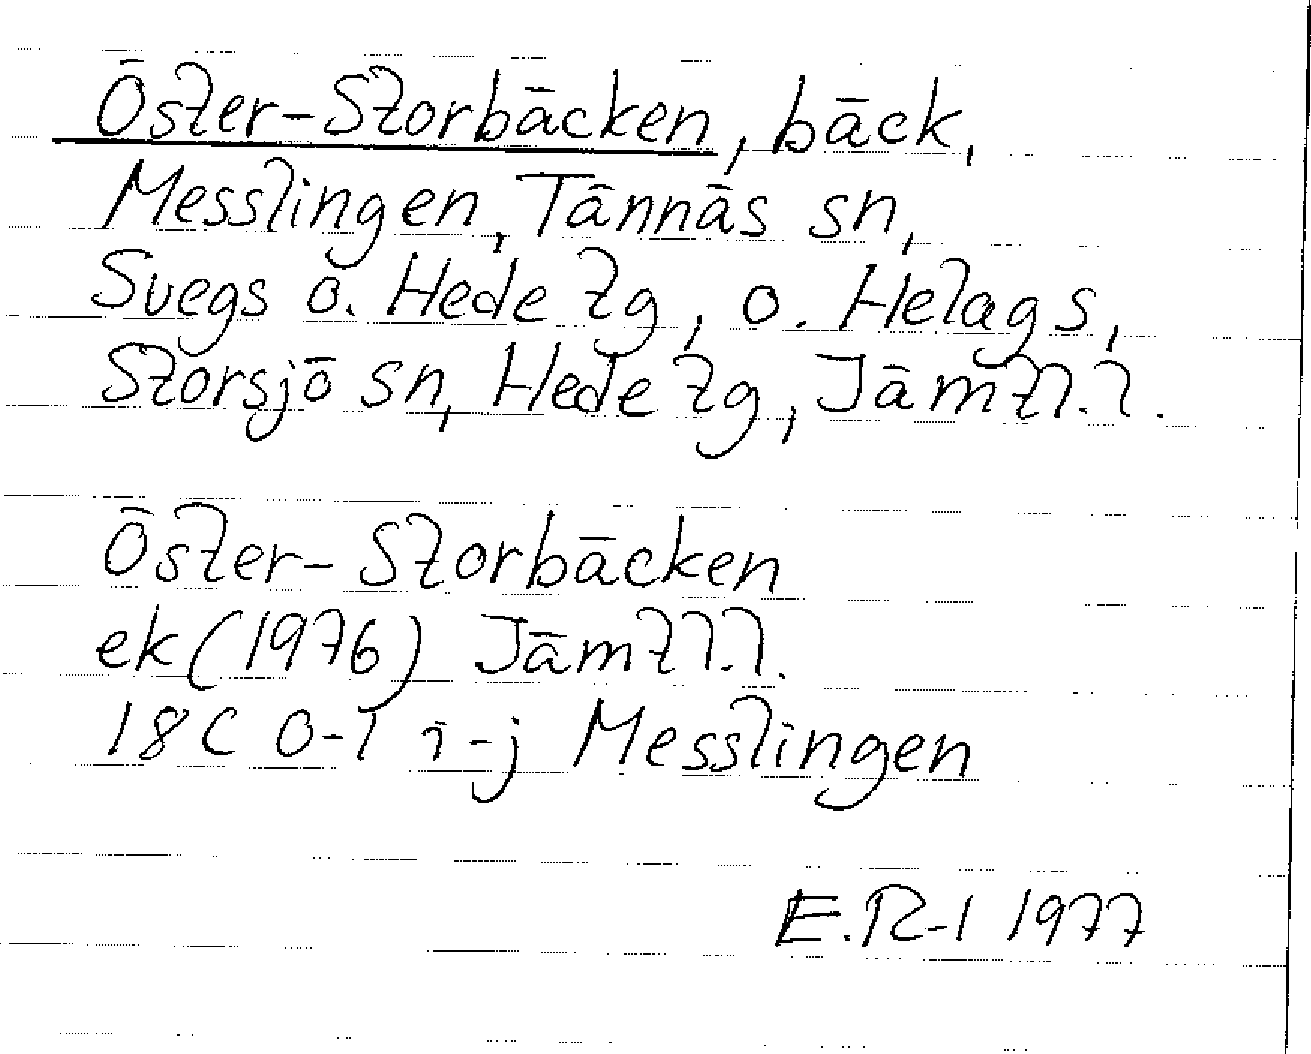 Öster-Storbäcken, bäck,
Messlingen, Tännäs sn,
Svegs o. Hede tg, o. Helags,
Storsjö sn, Hede tg, Jämtl.l.
Öster-Storbäcken
ek (1976) Jämtl.l.
18C 0-1 i-j Messlingen
E.R-l 1977